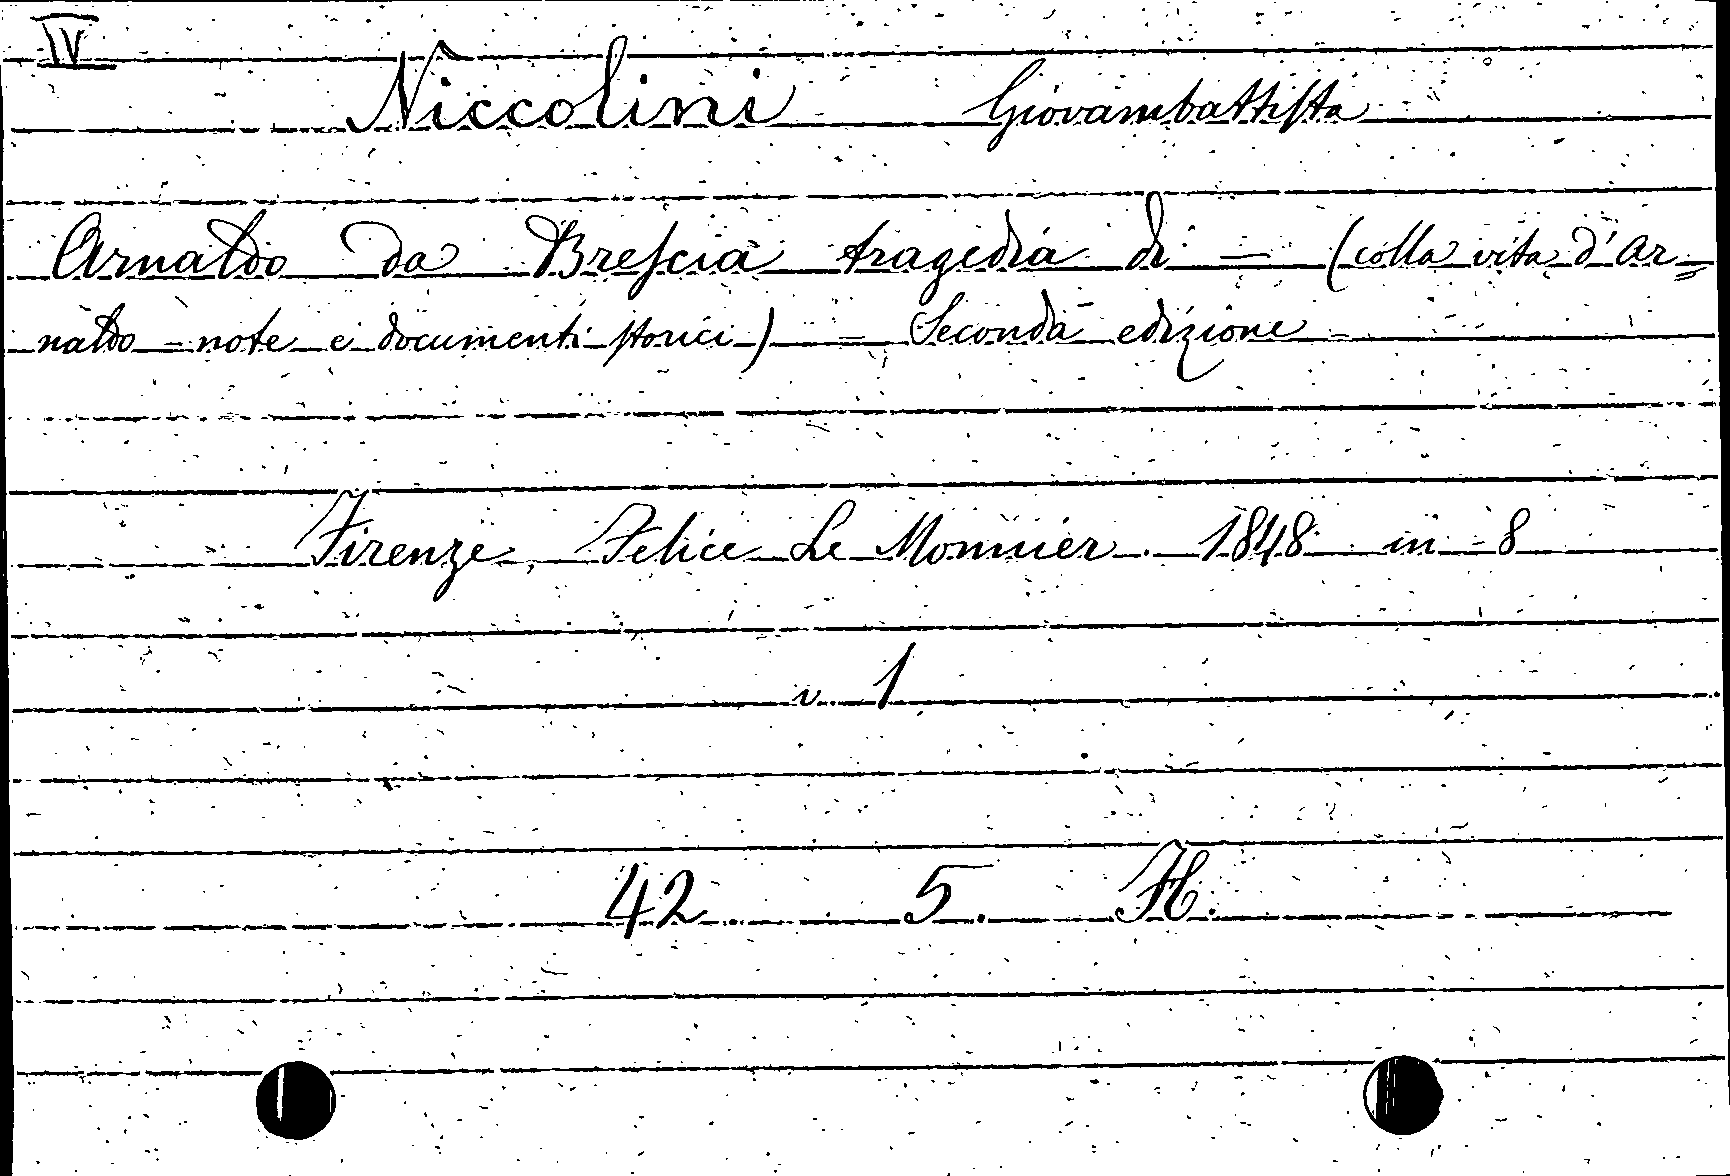 IV
Niccolini Giovambattista
Arnaldo da Brescia tragedia di — (colla vita d'Ar=
naldo - note e documenti storici) — Seconda edizione -
Firenze, Felice Le Monnier. 1848. in - 8
v. 1
42. 5. H.